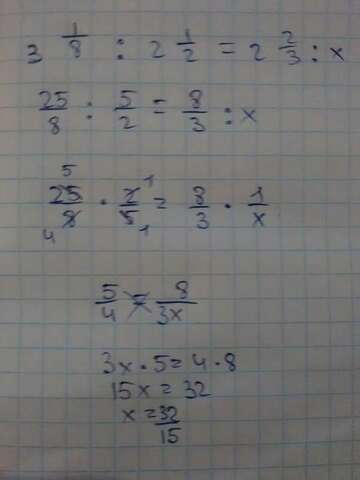 3 1/8 : 2 1/2 = 2 2/3 : x
25/8 : 5/2 = 8/3 : x
5 1
25/8 · 2/5 = 8/3 · 1/x
4 1
5/4 = 8/3x
3x · 5 = 4 · 8
15x = 32
x = 32/15